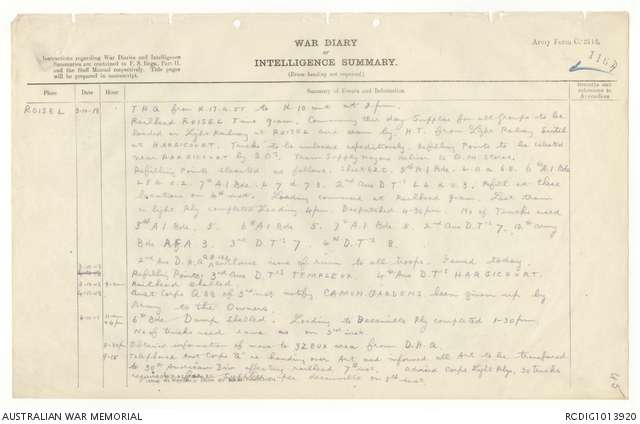 WAR DIARY
or
INTELLIGENCE SUMMARY.
(Erase heading not required.)
Army Form C. 2118.
Instructions regarding War Diaries and Intelligence
Summaries are contained in F. S. Regs., Part II.
and the Staff Manual respectively. Title pages
will be prepared in manuscript.
Place Date Hour Summary of Events and Information Remarks and
references to
Appendices
ROISEL 3-10-18 T.H.Q. from K.17.a.05 to K.10 at 2 pm.
Railhead ROISEL Time 9 am. Commencing this day Supplies for all groups to be
loaded on Light Railway at ROISEL and drawn by H.T. from Light Railway
at HARGICOURT. Trucks to be unloaded expeditiously. Refilling Points to be located
near HARGICOURT by S.O's.
Refilling Points situated as follows. Sheet 62c. 5th A.I. Bde. 6th A.I Bde
7th A.I Bde 2nd Aus D.T's Refill at these
locations on 4th inst. Loading commenced at Railhead 9 am. Last train
on light Rly completed loading 4 pm. Despatched 4-30 pm. No of Trucks used
5th A.I Bde. 5. 6th A.I Bde 5. 7th A.I Bde 5. 2nd Aus D.T's 7, 12th Army
Bde AFA 3. 3rd D.T's 7. 4th D.T's 8.
2nd Aus D.H.Q. issue of rum to all troops. Issued today.
Refilling Points: 3rd Aus D.T's TEMPLEUX. 4th Aus D.T's HARGICOURT.
Railhead shelled.
Aust Corps of 3rd inst notify CAMON GARDENS been given up by
Army to the Owners.
6th Bde Dump Shelled. Loading to Decauville Rly completed 1-30 pm.
No of trucks used same as on 3rd inst
Obtained information of move to area from D.H.Q.
Telephoned Aust Corps 'Q' re handing over Art and informed all Art to be transferred
to 30th American Divn effecting railhead 7th inst. Advised Corps Light Rly. 30 trucks
required for supplies per decauville on 7th inst.
AUSTRALIAN WAR MEMORIAL
RCDIG1013920